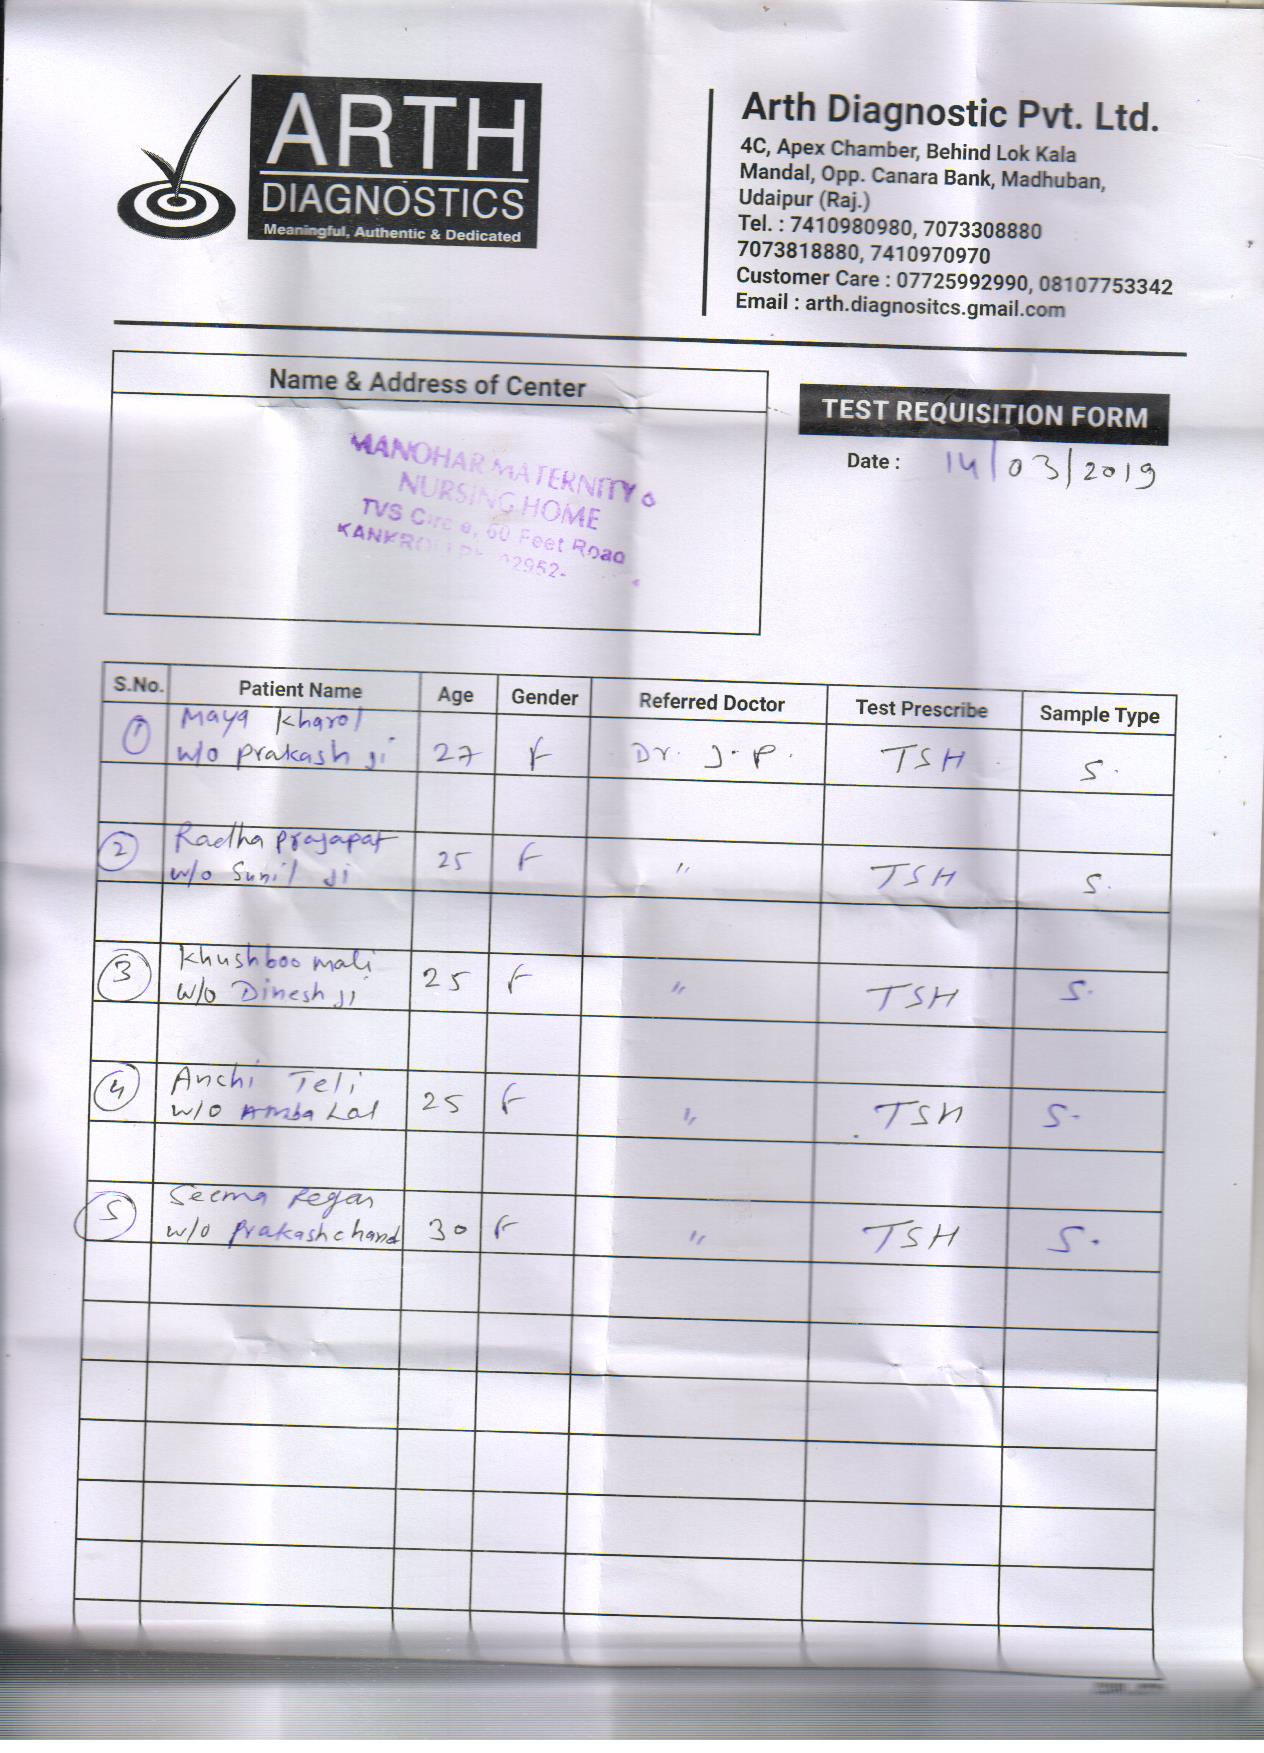 ARTH
DIAGNOSTICS
Meaningful, Authentic & Dedicated
Arth Diagnostic Pvt. Ltd.
4C, Apex Chamber, Behind Lok Kala
Mandal, Opp. Canara Bank, Madhuban,
Udaipur (Raj.)
Tel. : 7410980980, 7073308880
7073818880, 7410970970
Customer Care : 07725992990, 08107753342
Email : arth.diagnositcs.gmail.com
Name & Address of Center
MANOHAR MATERNITY
NURSING HOME
TVS Circle, 60 Feet Road
02952-
TEST REQUISITION FORM
Date : 14/03/2019
S.No. Patient Name Age Gender Referred Doctor Test Prescribe Sample Type
1 Maya Kharol
w/o Prakash Ji 27 F Dr. J.P. TSH S.
2 Radha Prajapat
w/o Sunil Ji 25 F " TSH S.
3 Khushboo mali
w/o Dinesh Ji 25 F " TSH S.
4 Anchi Teli
w/o Amba Lal 25 F " TSH S.
5 Seema Regar
w/o Prakash chand 30 F " TSH S.